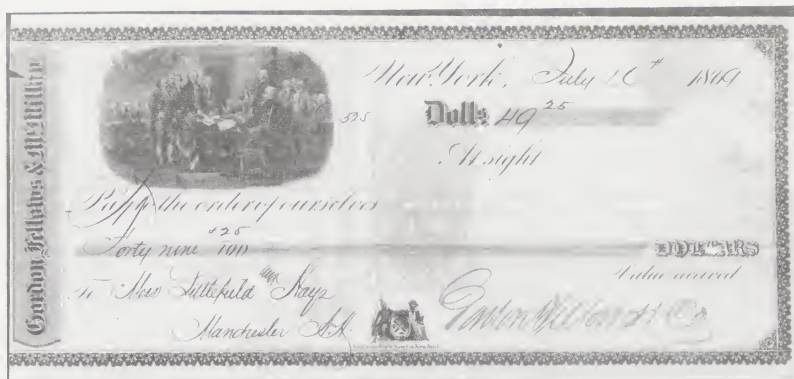 Gordon Fellows & McMillan
New York, July 16th 1869
525
Dolls 49 25
At sight
Pay to the order of ourselves
Forty nine 25/100 DOLLARS
Value received
To Littlefield & Hays
Manchester